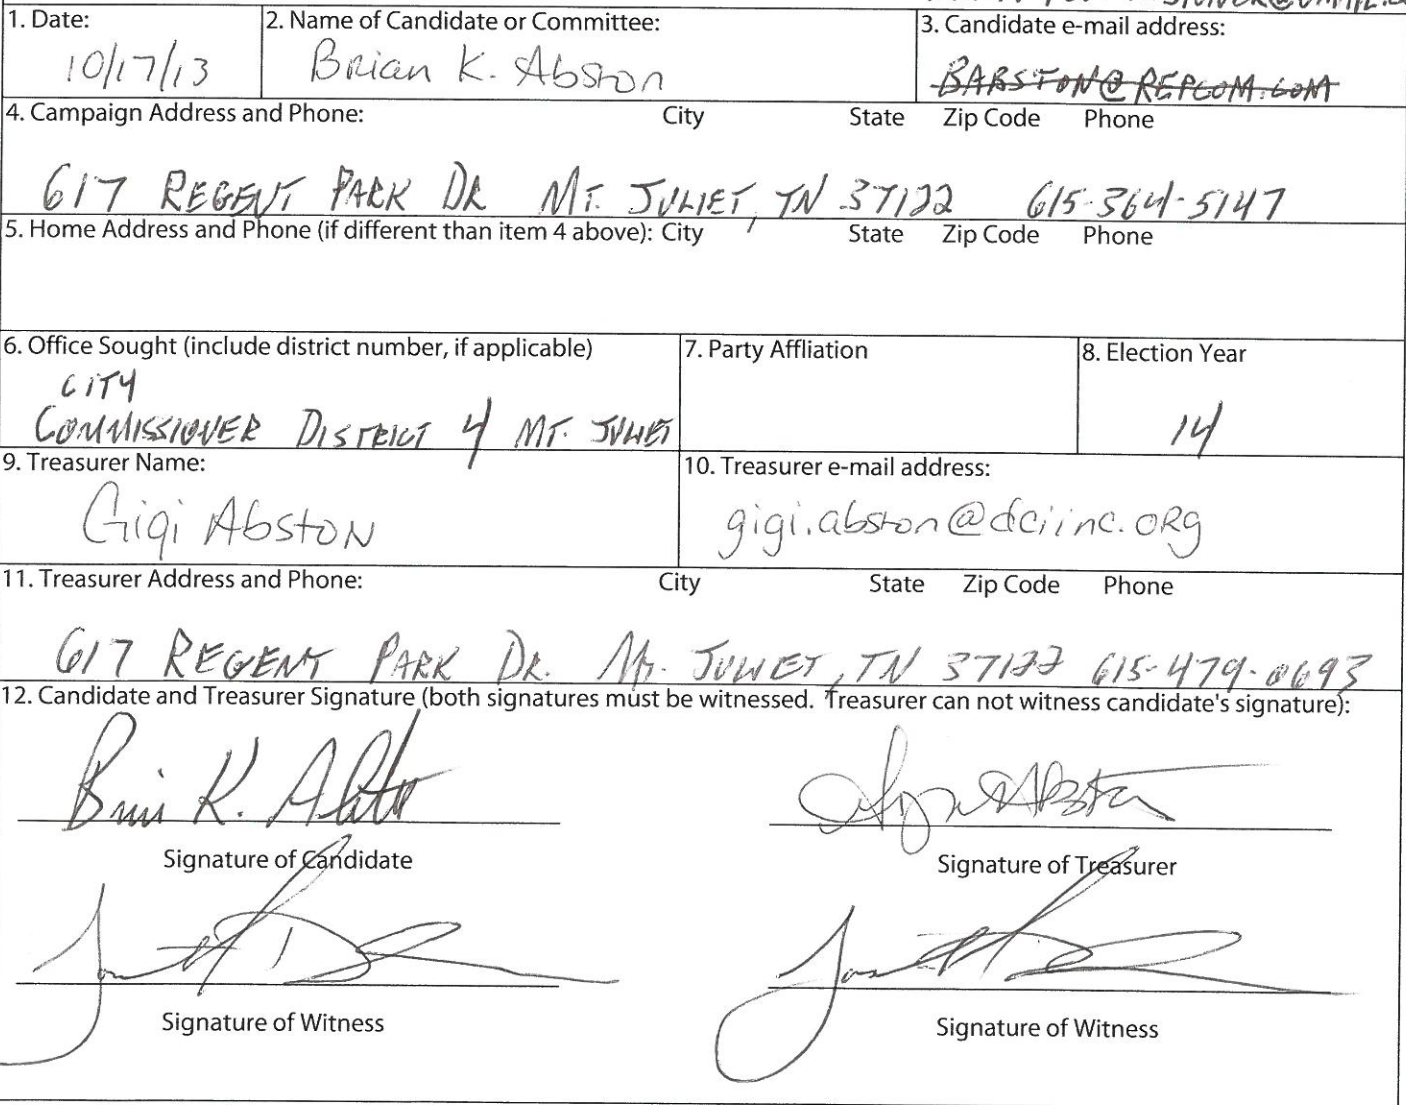 1. Date:
10/17/13
2. Name of Candidate or Committee:
Brian K. Abston
3. Candidate e-mail address:
BABSTON@REPCOM.COM
4. Campaign Address and Phone: City State Zip Code Phone
617 REGENT PARK DR MT. JULIET, TN 37122 615-364-5147
5. Home Address and Phone (if different than item 4 above): City State Zip Code Phone
6. Office Sought (include district number, if applicable)
CITY
COMMISSIONER DISTRICT 4 MT. JULIET
7. Party Affliation
8. Election Year
14
9. Treasurer Name:
Gigi Abston
10. Treasurer e-mail address:
gigi.abston@dciinc.org
11. Treasurer Address and Phone: City State Zip Code Phone
617 REGENT PARK DR. Mt. JULIET, TN 37122 615-479-0693
12. Candidate and Treasurer Signature (both signatures must be witnessed. Treasurer can not witness candidate's signature):
Brian K. Abston
Gigi Abston
Signature of Candidate
Signature of Treasurer
Signature of Witness
Signature of Witness